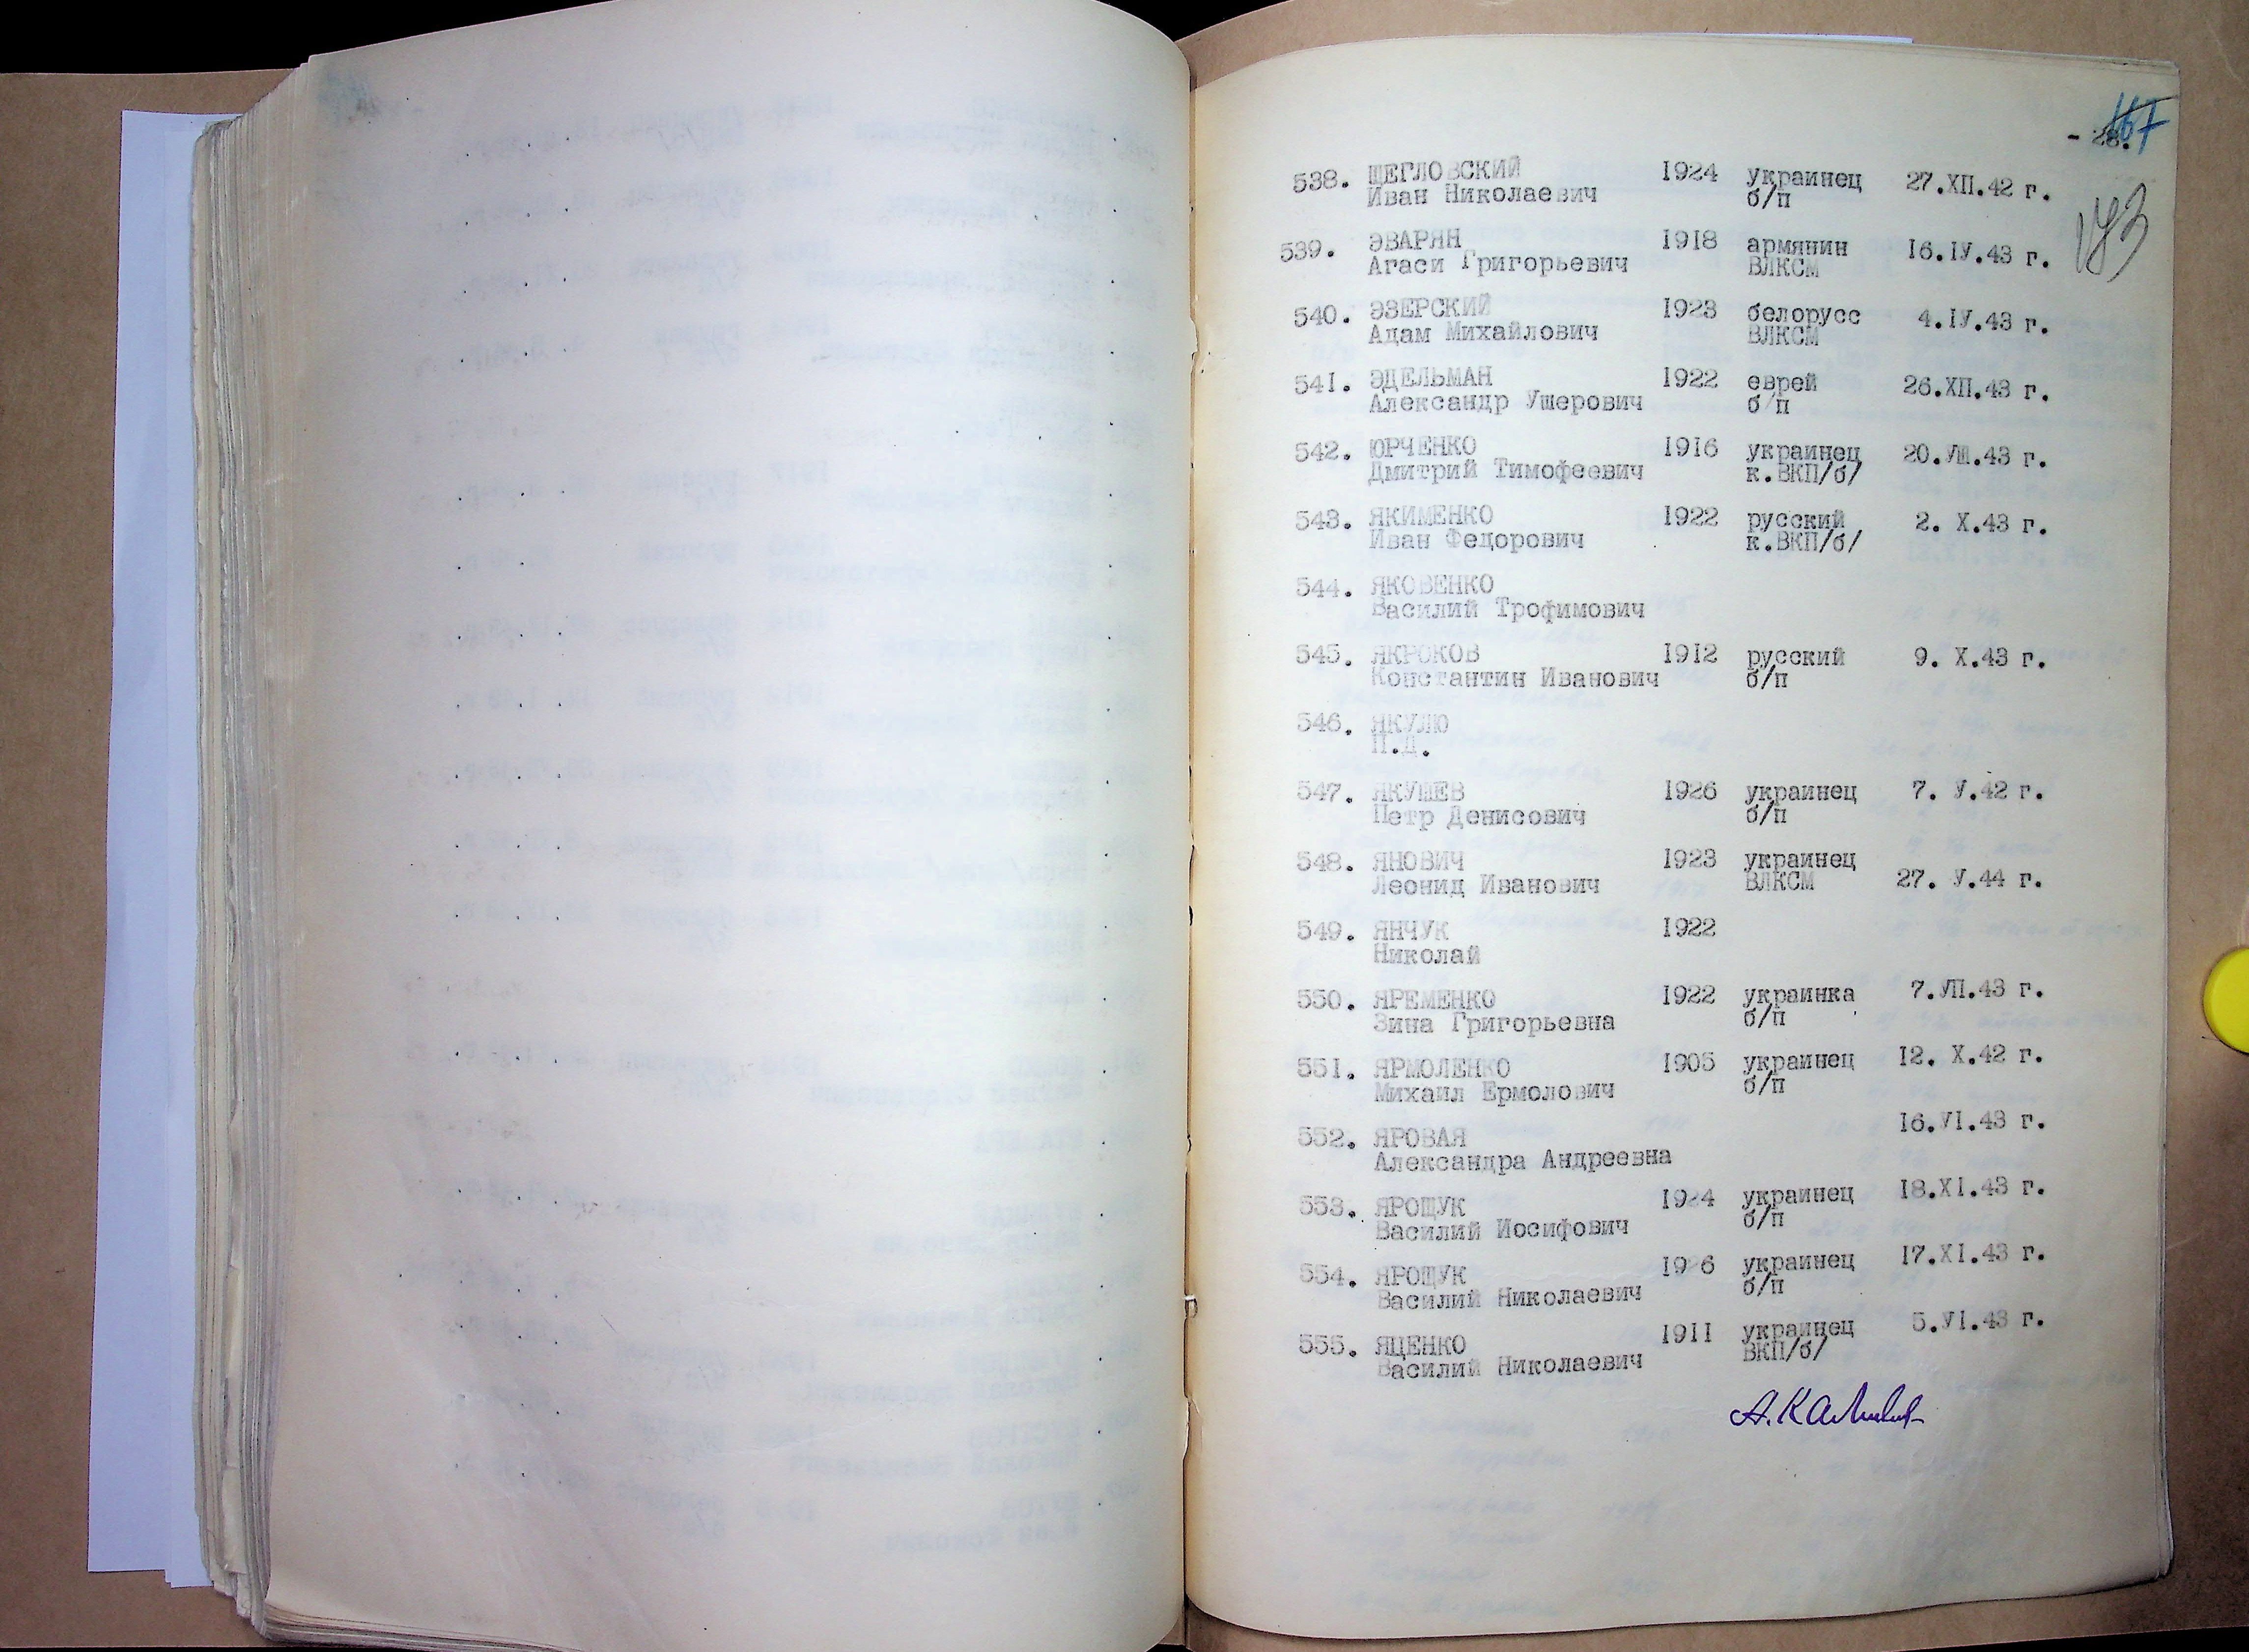 - 28.
167
183
538. ЩЕГЛОВСКИЙ 1924 украинец 27.XII.42 г.
Иван Николаевич б/п
539. ЭВАРЯН 1918 армянин 16.IУ.43 г.
Агаси Григорьевич ВЛКСМ
540. ЭЗЕРСКИЙ 1923 белорусс 4.IУ.43 г.
Адам Михайлович ВЛКСМ
541. ЭДЕЛЬМАН 1922 еврей 26.XII.43 г.
Александр Ушерович б/п
542. ЮРЧЕНКО 1916 украинец 20.УШ.43 г.
Дмитрий Тимофеевич к.ВКП/б/
543. ЯКИМЕНКО 1922 русский 2. X.43 г.
Иван Федорович к.ВКП/б/
544. ЯКОВЕНКО
Василий Трофимович
545. ЯКРОКОВ 1912 русский 9. X.43 г.
Константин Иванович б/п
546. ЯКУЛЮ
П.Д.
547. ЯКУШЕВ 1926 украинец 7. У.42 г.
Петр Денисович б/п
548. ЯНОВИЧ 1923 украинец
Леонид Иванович ВЛКСМ 27. У.44 г.
549. ЯНЧУК 1922
Николай
550. ЯРЕМЕНКО 1922 украинка 7.УП.43 г.
Зина Григорьевна б/п
551. ЯРМОЛЕНКО 1905 украинец 12. X.42 г.
Михаил Ермолович б/п
552. ЯРОВАЯ 16.УI.43 г.
Александра Андреевна
553. ЯРОЩУК 1924 украинец 18.XI.43 г.
Василий Иосифович б/п
554. ЯРОЩУК 1926 украинец 17.XI.43 г.
Василий Николаевич б/п
555. ЯЦЕНКО 1911 украинец 5.УI.43 г.
Василий Николаевич ВКП/б/